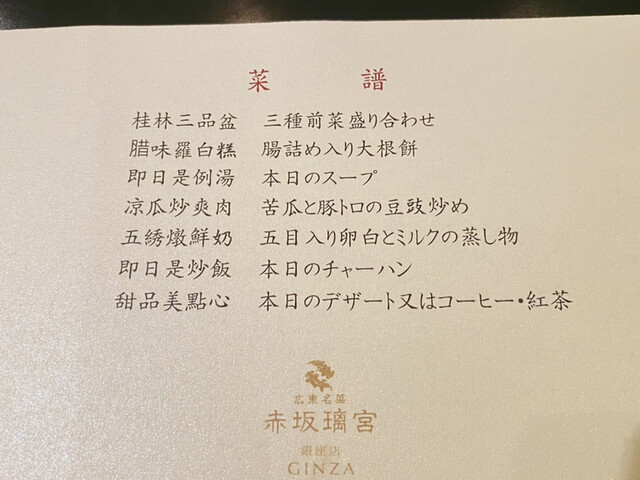 菜 譜
桂林三品盆 三種前菜盛り合わせ
腊味羅白糕 腸詰め入り大根餅
即日是例湯 本日のスープ
凉瓜炒爽肉 苦瓜と豚トロの豆豉炒め
五綉燉鮮奶 五目入り卵白とミルクの蒸し物
即日是炒飯 本日のチャーハン
甜品美點心 本日のデザート又はコーヒー・紅茶
広東名菜
赤坂璃宮
銀座店
GINZA